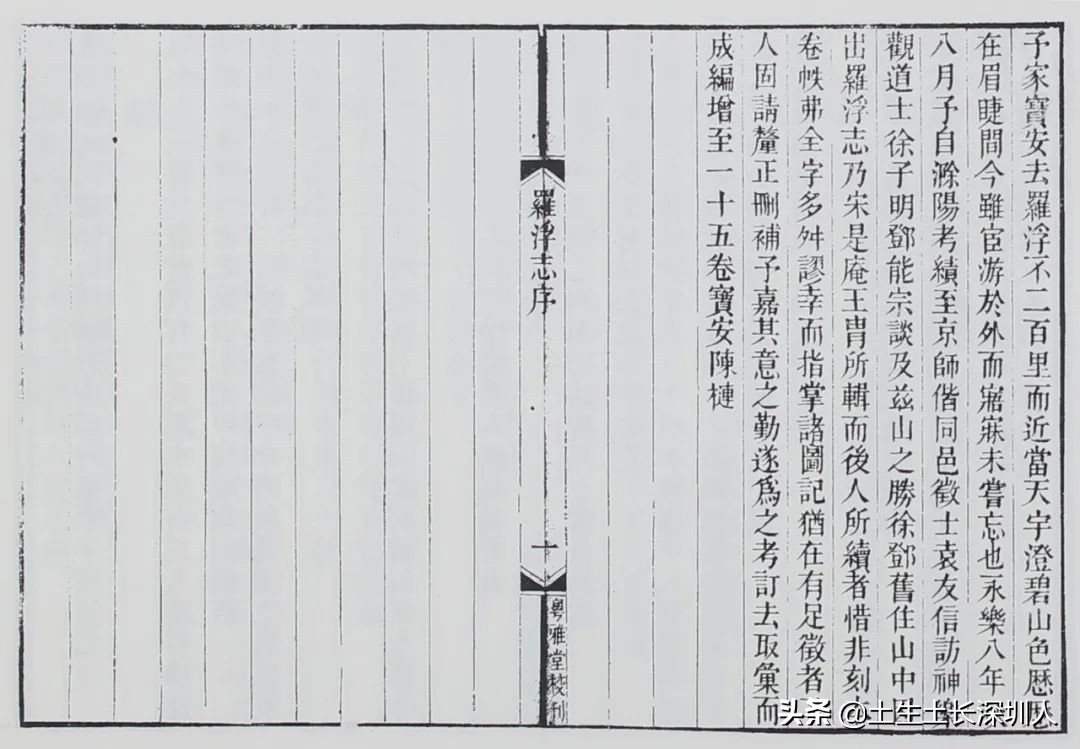 予家寶安去羅浮不二百里而近當天宇澄碧山色厯厯
在眉睫間今雖宦游於外而寤寐未嘗忘也永樂八年
八月予自滁陽考績至京師偕同邑徵士袁友信訪神樂
觀道士徐子明鄧能宗談及茲山之勝徐鄧舊住山中
出羅浮志乃宋是庵王胄所輯而後人所續者惜非刻
卷帙弗全字多舛謬幸而指掌諸圖記猶在有足徵者
人固請釐正刪補予嘉其意之勤遂爲之考訂去取彙而
成編增至一十五卷寶安陳槤
羅浮志序
一
粵雅堂校刊
头条 @土生土长深圳人